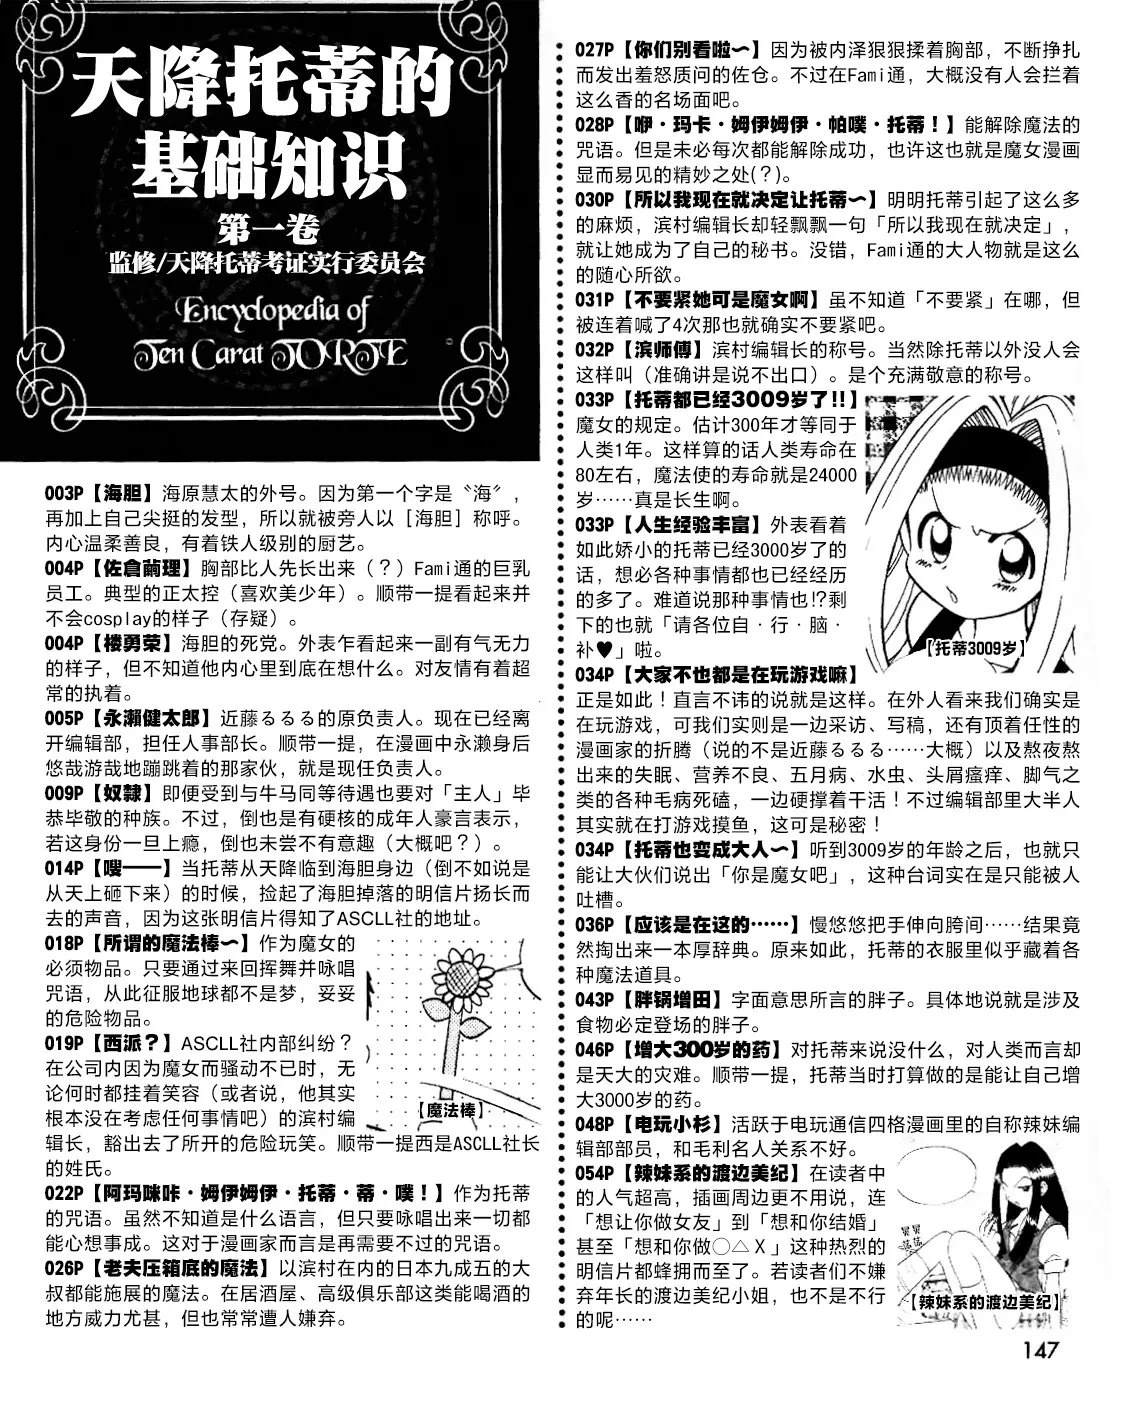 天降托蒂的
基础知识
第一卷
监修/天降托蒂考证实行委员会
Encyclopedia of
Ten Carat TORTE
003P【海胆】海原慧太的外号。因为第一个字是〝海〞，
再加上自己尖挺的发型，所以就被旁人以［海胆］称呼。
内心温柔善良，有着铁人级别的厨艺。
004P【佐倉繭理】胸部比人先长出来（？）Fami通的巨乳
员工。典型的正太控（喜欢美少年）。顺带一提看起来并
不会cosplay的样子（存疑）。
004P【楼勇荣】海胆的死党。外表乍看起来一副有气无力
的样子，但不知道他内心里到底在想什么。对友情有着超
常的执着。
005P【永瀨健太郎】近藤るるる的原负责人。现在已经离
开编辑部，担任人事部长。顺带一提，在漫画中永濑身后
悠哉游哉地蹦跳着的那家伙，就是现任负责人。
009P【奴隸】即便受到与牛马同等待遇也要对「主人」毕
恭毕敬的种族。不过，倒也是有硬核的成年人豪言表示，
若这身份一旦上瘾，倒也未尝不有意趣（大概吧？）。
014P【嗖——】当托蒂从天降临到海胆身边（倒不如说是
从天上砸下来）的时候，捡起了海胆掉落的明信片扬长而
去的声音，因为这张明信片得知了ASCLL社的地址。
018P【所谓的魔法棒～】作为魔女的
必须物品。只要通过来回挥舞并咏唱
咒语，从此征服地球都不是梦，妥妥
的危险物品。
019P【西派？】ASCLL社内部纠纷？
在公司内因为魔女而骚动不已时，无
论何时都挂着笑容（或者说，他其实
根本没在考虑任何事情吧）的滨村编
辑长，豁出去了所开的危险玩笑。顺带一提西是ASCLL社长
的姓氏。
【魔法棒】
022P【阿玛咪咔・姆伊姆伊・托蒂・蒂・噗！】作为托蒂
的咒语。虽然不知道是什么语言，但只要咏唱出来一切都
能心想事成。这对于漫画家而言是再需要不过的咒语。
026P【老夫压箱底的魔法】以滨村在内的日本九成五的大
叔都能施展的魔法。在居酒屋、高级俱乐部这类能喝酒的
地方威力尤甚，但也常常遭人嫌弃。
027P【你们别看啦～】因为被内泽狠狠揉着胸部，不断挣扎
而发出羞怒质问的佐仓。不过在Fami通，大概没有人会拦着
这么香的名场面吧。
028P【咿・玛卡・姆伊姆伊・帕噗・托蒂！】能解除魔法的
咒语。但是未必每次都能解除成功，也许这也就是魔女漫画
显而易见的精妙之处(？)。
030P【所以我现在就决定让托蒂～】明明托蒂引起了这么多
的麻烦，滨村编辑长却轻飘飘一句「所以我现在就决定」，
就让她成为了自己的秘书。没错，Fami通的大人物就是这么
的随心所欲。
031P【不要紧她可是魔女啊】虽不知道「不要紧」在哪，但
被连着喊了4次那也就确实不要紧吧。
032P【滨师傅】滨村编辑长的称号。当然除托蒂以外没人会
这样叫（准确讲是说不出口）。是个充满敬意的称号。
033P【托蒂都已经3009岁了!!】
魔女的规定。估计300年才等同于
人类1年。这样算的话人类寿命在
80左右，魔法使的寿命就是24000
岁……真是长生啊。
033P【人生经验丰富】外表看着
如此娇小的托蒂已经3000岁了的
话，想必各种事情都也已经经历
的多了。难道说那种事情也!?剩
下的也就「请各位自・行・脑・
补♥」啦。
【托蒂3009岁】
034P【大家不也都是在玩游戏嘛】
正是如此！直言不讳的说就是这样。在外人看来我们确实是
在玩游戏，可我们实则是一边采访、写稿，还有顶着任性的
漫画家的折腾（说的不是近藤るるる……大概）以及熬夜熬
出来的失眠、营养不良、五月病、水虫、头屑瘙痒、脚气之
类的各种毛病死磕，一边硬撑着干活！不过编辑部里大半人
其实就在打游戏摸鱼，这可是秘密！
034P【托蒂也变成大人～】听到3009岁的年龄之后，也就只
能让大伙们说出「你是魔女吧」，这种台词实在是只能被人
吐槽。
036P【应该是在这的……】慢悠悠把手伸向胯间……结果竟
然掏出来一本厚辞典。原来如此，托蒂的衣服里似乎藏着各
种魔法道具。
043P【胖锅增田】字面意思所言的胖子。具体地说就是涉及
食物必定登场的胖子。
046P【增大300岁的药】对托蒂来说没什么，对人类而言却
是天大的灾难。顺带一提，托蒂当时打算做的是能让自己增
大3000岁的药。
048P【电玩小杉】活跃于电玩通信四格漫画里的自称辣妹编
辑部部员，和毛利名人关系不好。
054P【辣妹系的渡边美纪】在读者中
的人气超高，插画周边更不用说，连
「想让你做女友」到「想和你结婚」
甚至「想和你做○△Ｘ」这种热烈的
明信片都蜂拥而至了。若读者们不嫌
弃年长的渡边美纪小姐，也不是不行
的呢……
【辣妹系的渡边美纪】
147